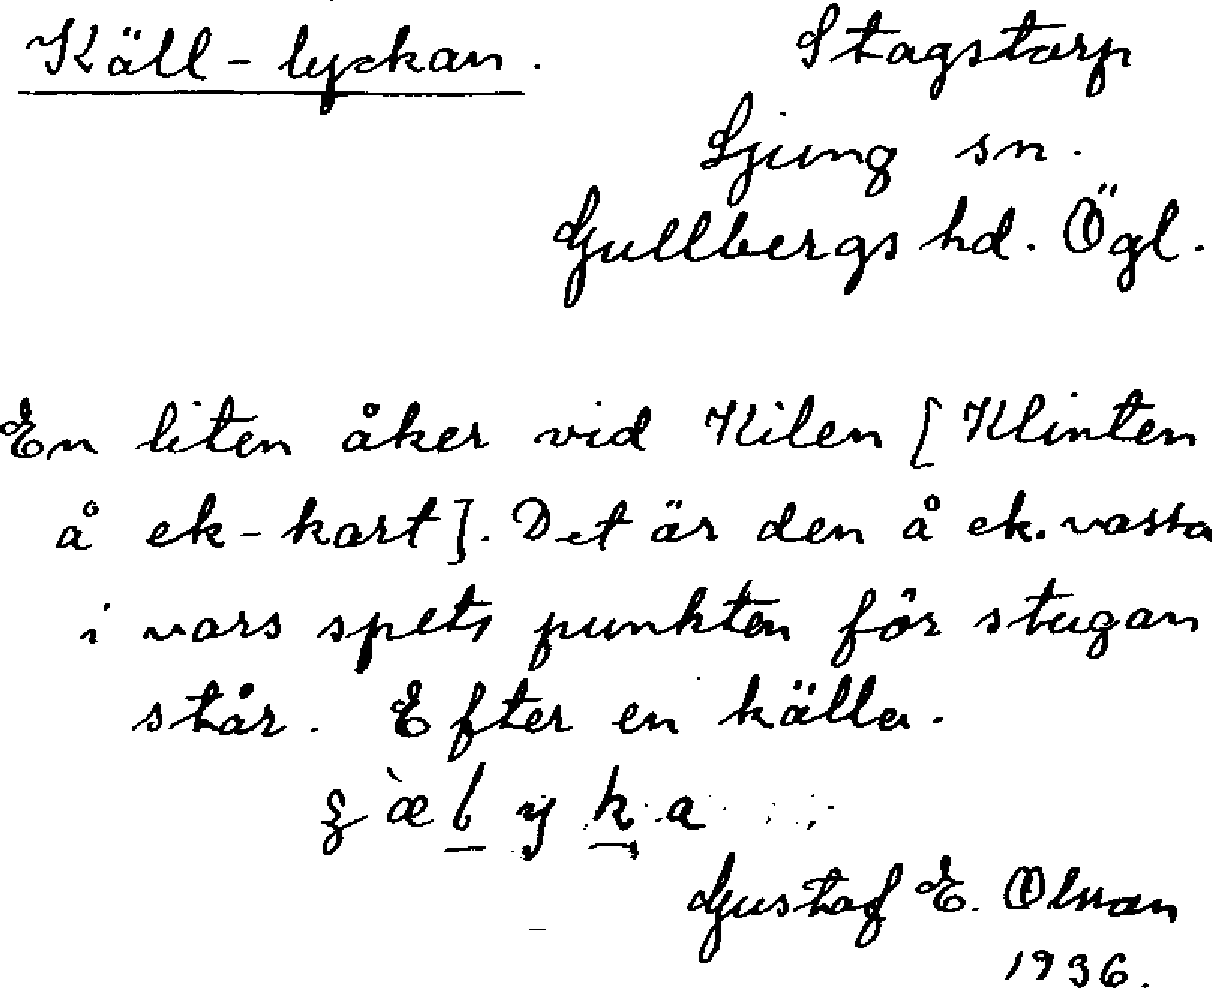 Käll-lyckan. Stagstorp
Ljung sn.
Gullbergs hd. Ögl.
En liten åker vid Kilen [Klinten
å ek-kart]. Det är den å ek. vassa
i vars spets punkten för stugan
står. Efter en källa.
Gustaf E. Olsson
1936.